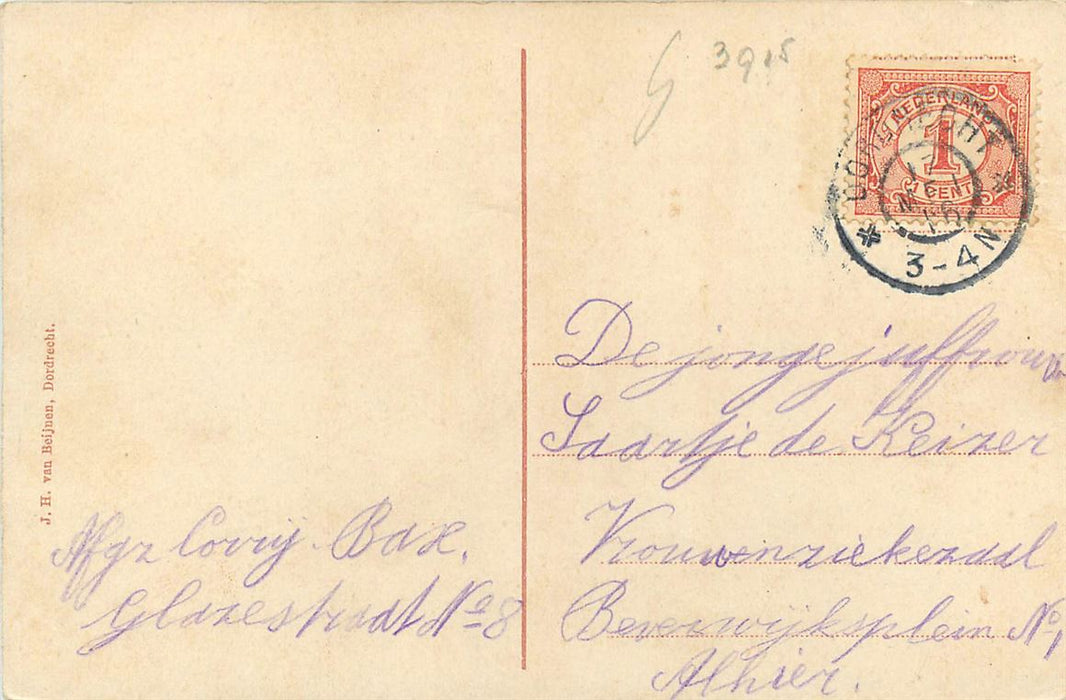 3915
NEDERLAND
1
CENT
DORDRECHT
3-4N
J. H. van Beijnen, Dordrecht.
De jonge juffrouw
Saartje de Keizer
Vrouwenziekezaal
Beverwijksplein No 1
Alhier.
Afgz Corry Bax.
Glazestraat No 8